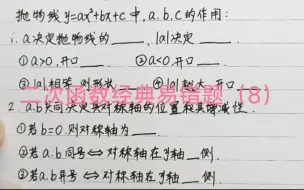 抛物线 y=ax²+bx+c 中, a.b.c 的作用:
1. a 决定抛物线的____, |a|决定____.
①a>0, 开口____ ②a<0, 开口____.
③|a|相等, 对形状 ④|a|越大, 开口
二次函数经典易错题（8）
2. a.b 共同决定其对称轴的位置及其增减性.
①若 b=0, 则对称轴为____.
②若 a.b 同号 ⇔ 对称轴在 y 轴__侧.
③若 a.b 异号 ⇔ 对称轴在 y 轴__侧.